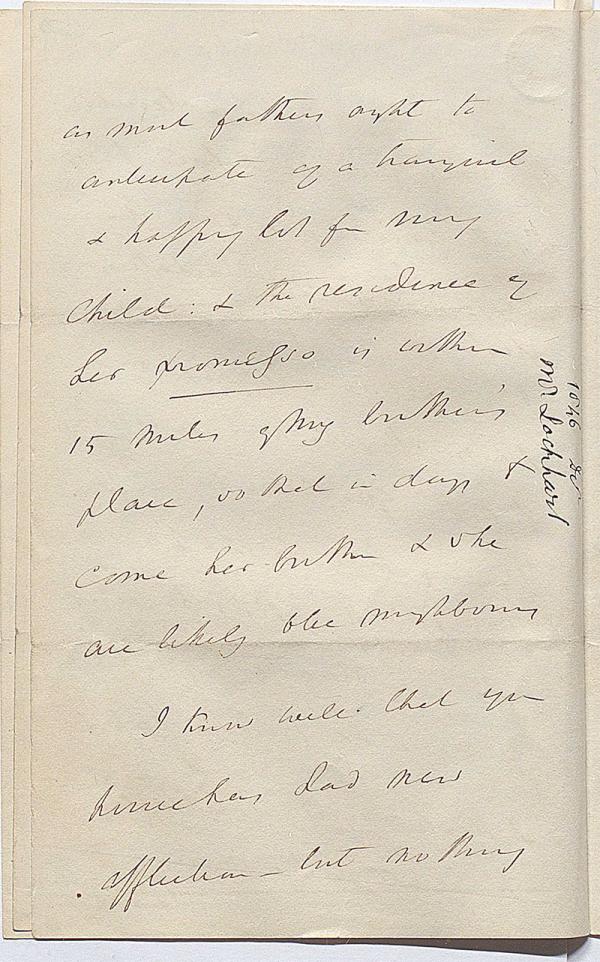 as most fathers ought to
anticipate of a tranquil
& happy lot for my
Child: & the residence of
her promesso is within
15 miles of my brother's
place, so that in days to
come her brother & she
are likely to be neighbours
I know well that you
have had new
affliction – but nothing
1846 Dec
Mr Lockhart